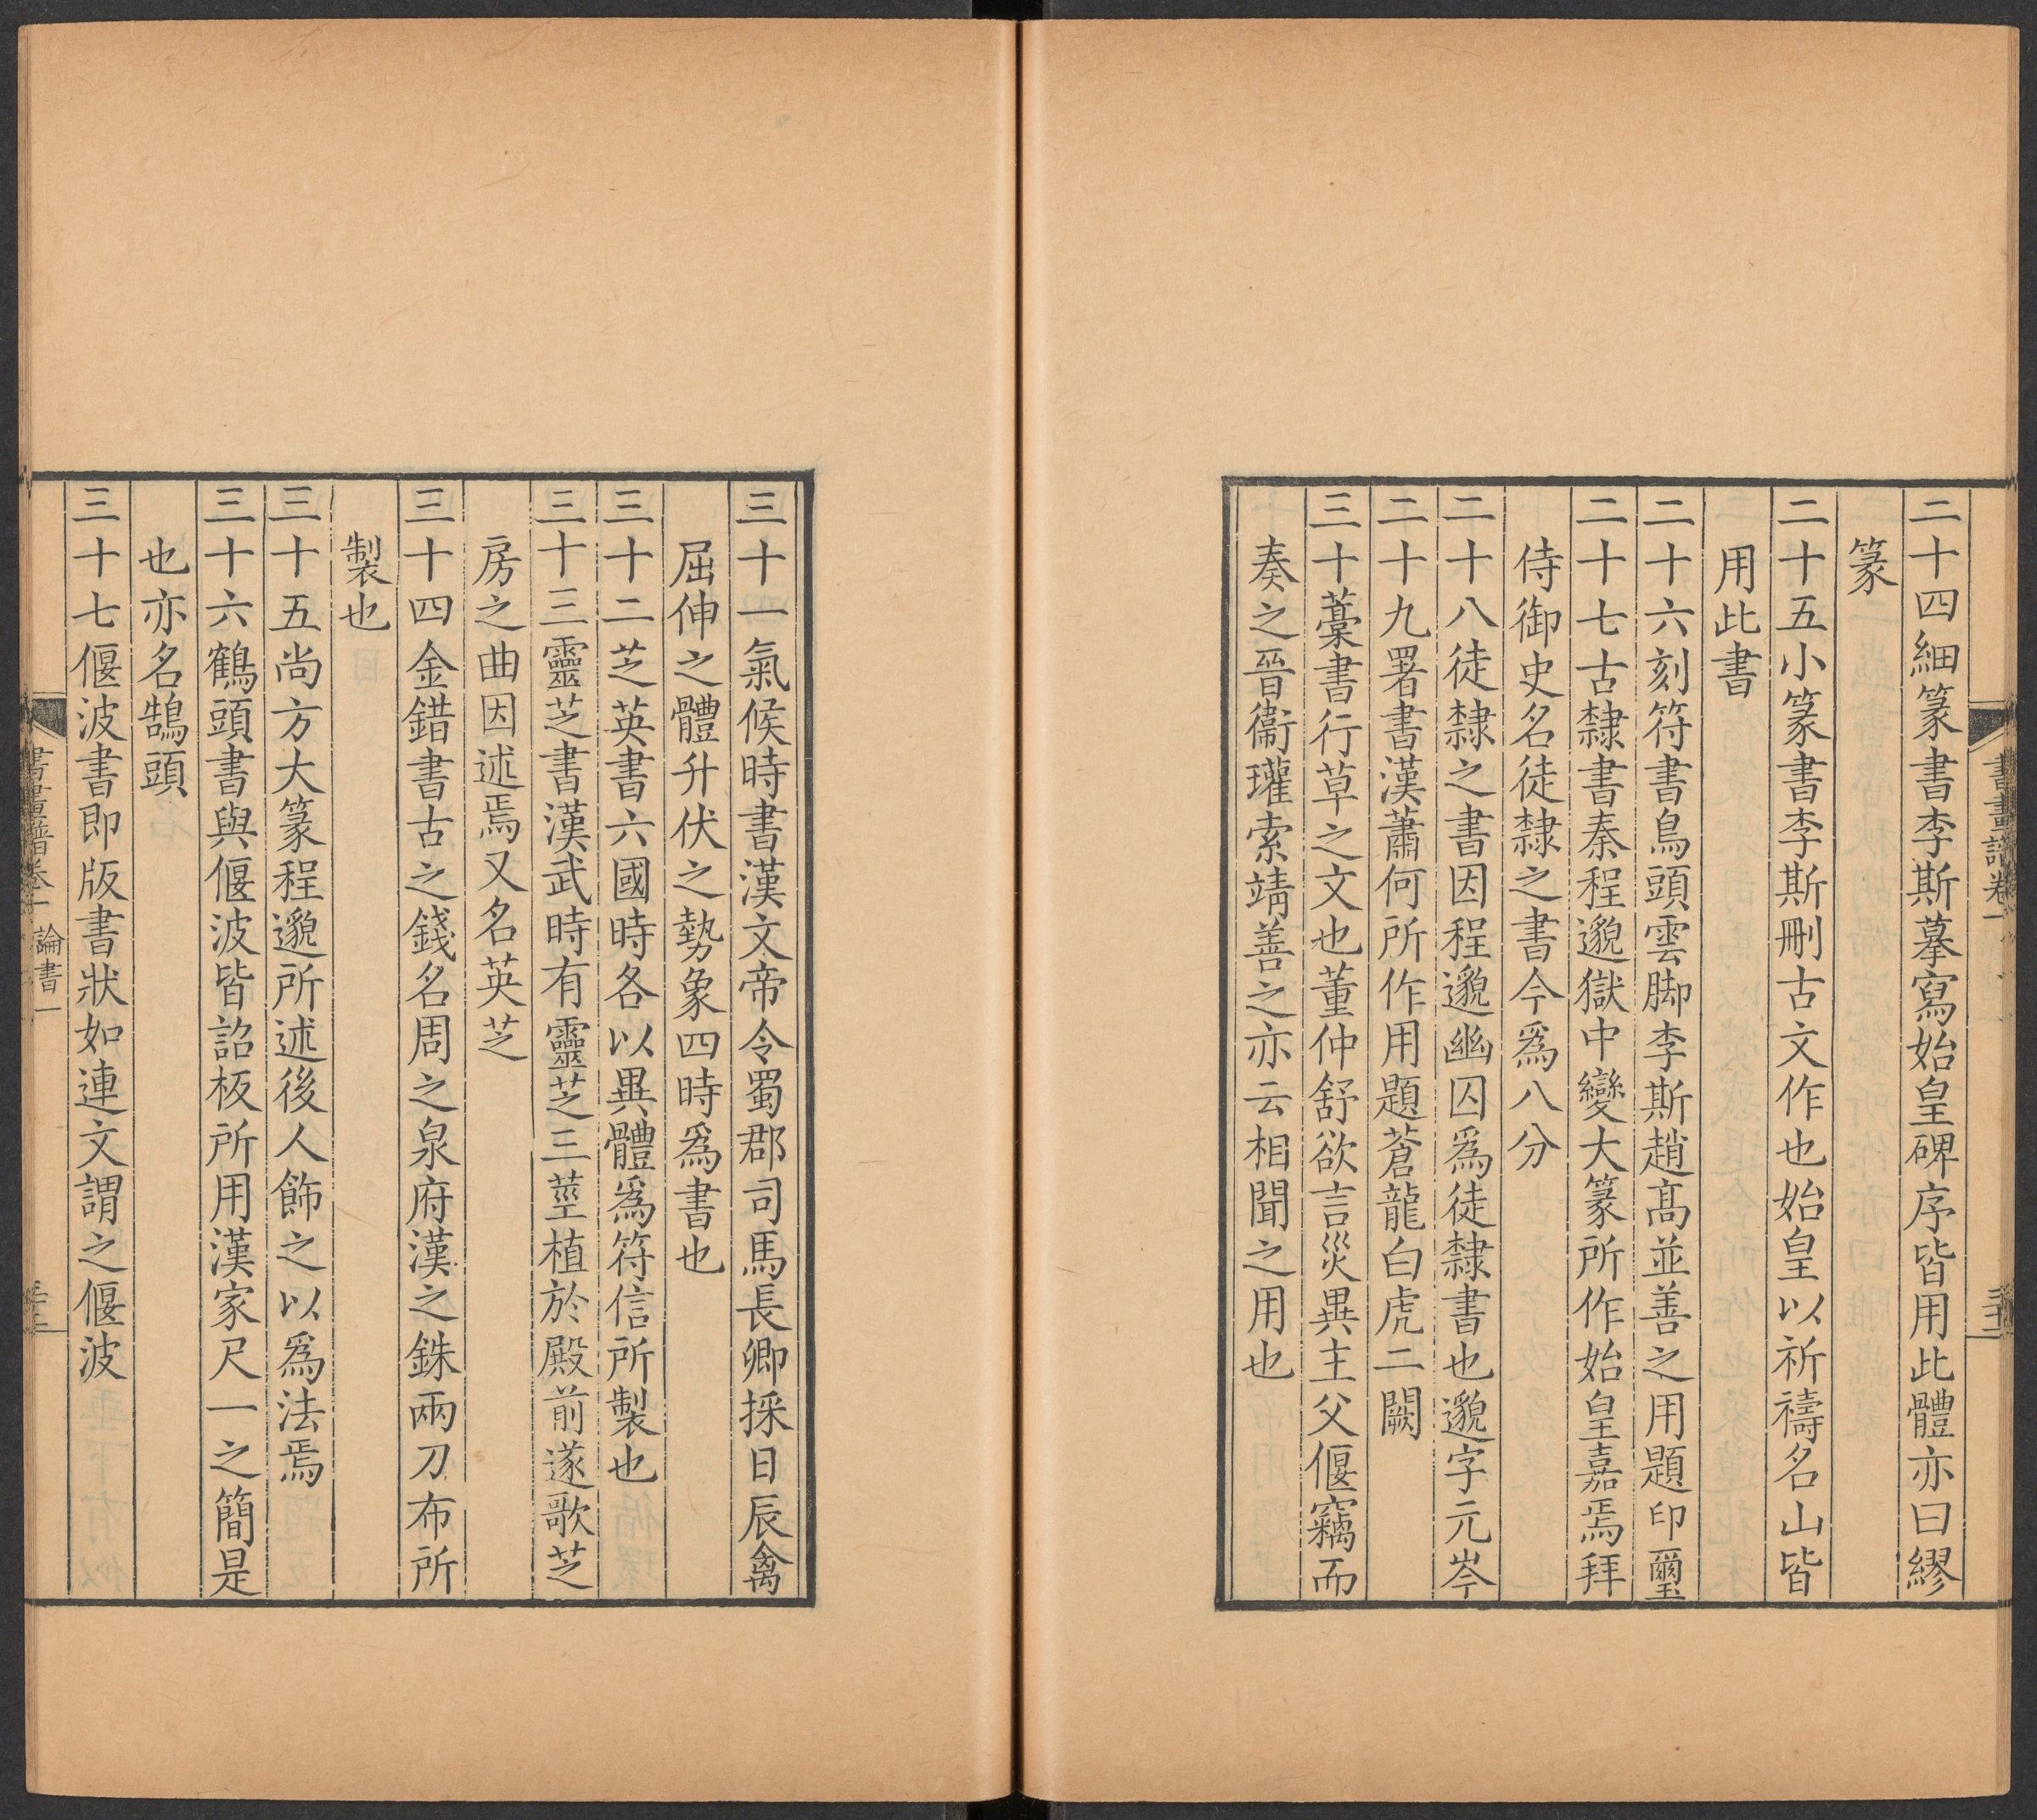 書畫譜卷一
二十四細篆書李斯摹寫始皇碑序皆用此體亦曰繆
篆
二十五小篆書李斯刪古文作也始皇以祈禱名山皆
用此書
二十六刻符書鳥頭雲脚李斯趙高並善之用題印璽
二十七古隸書秦程邈獄中變大篆所作始皇嘉焉拜
侍御史名徒隸之書今爲八分
二十八徒隸之書因程邈幽囚爲徒隸書也邈字元岑
二十九署書漢蕭何所作用題蒼龍白虎二闕
三十藁書行草之文也董仲舒欲言災異主父偃竊而
奏之晉衞瓘索靖善之亦云相聞之用也
三十一氣候時書漢文帝令蜀郡司馬長卿採日辰禽
屈伸之體升伏之勢象四時爲書也
三十二芝英書六國時各以異體爲符信所製也
三十三靈芝書漢武時有靈芝三莖植於殿前遂歌芝
房之曲因述焉又名英芝
三十四金錯書古之錢名周之泉府漢之銖兩刀布所
製也
三十五尚方大篆程邈所述後人飾之以爲法焉
三十六鶴頭書與偃波皆詔板所用漢家尺一之簡是
也亦名鵠頭
三十七偃波書即版書狀如連文謂之偃波
書畫譜卷一 論書一